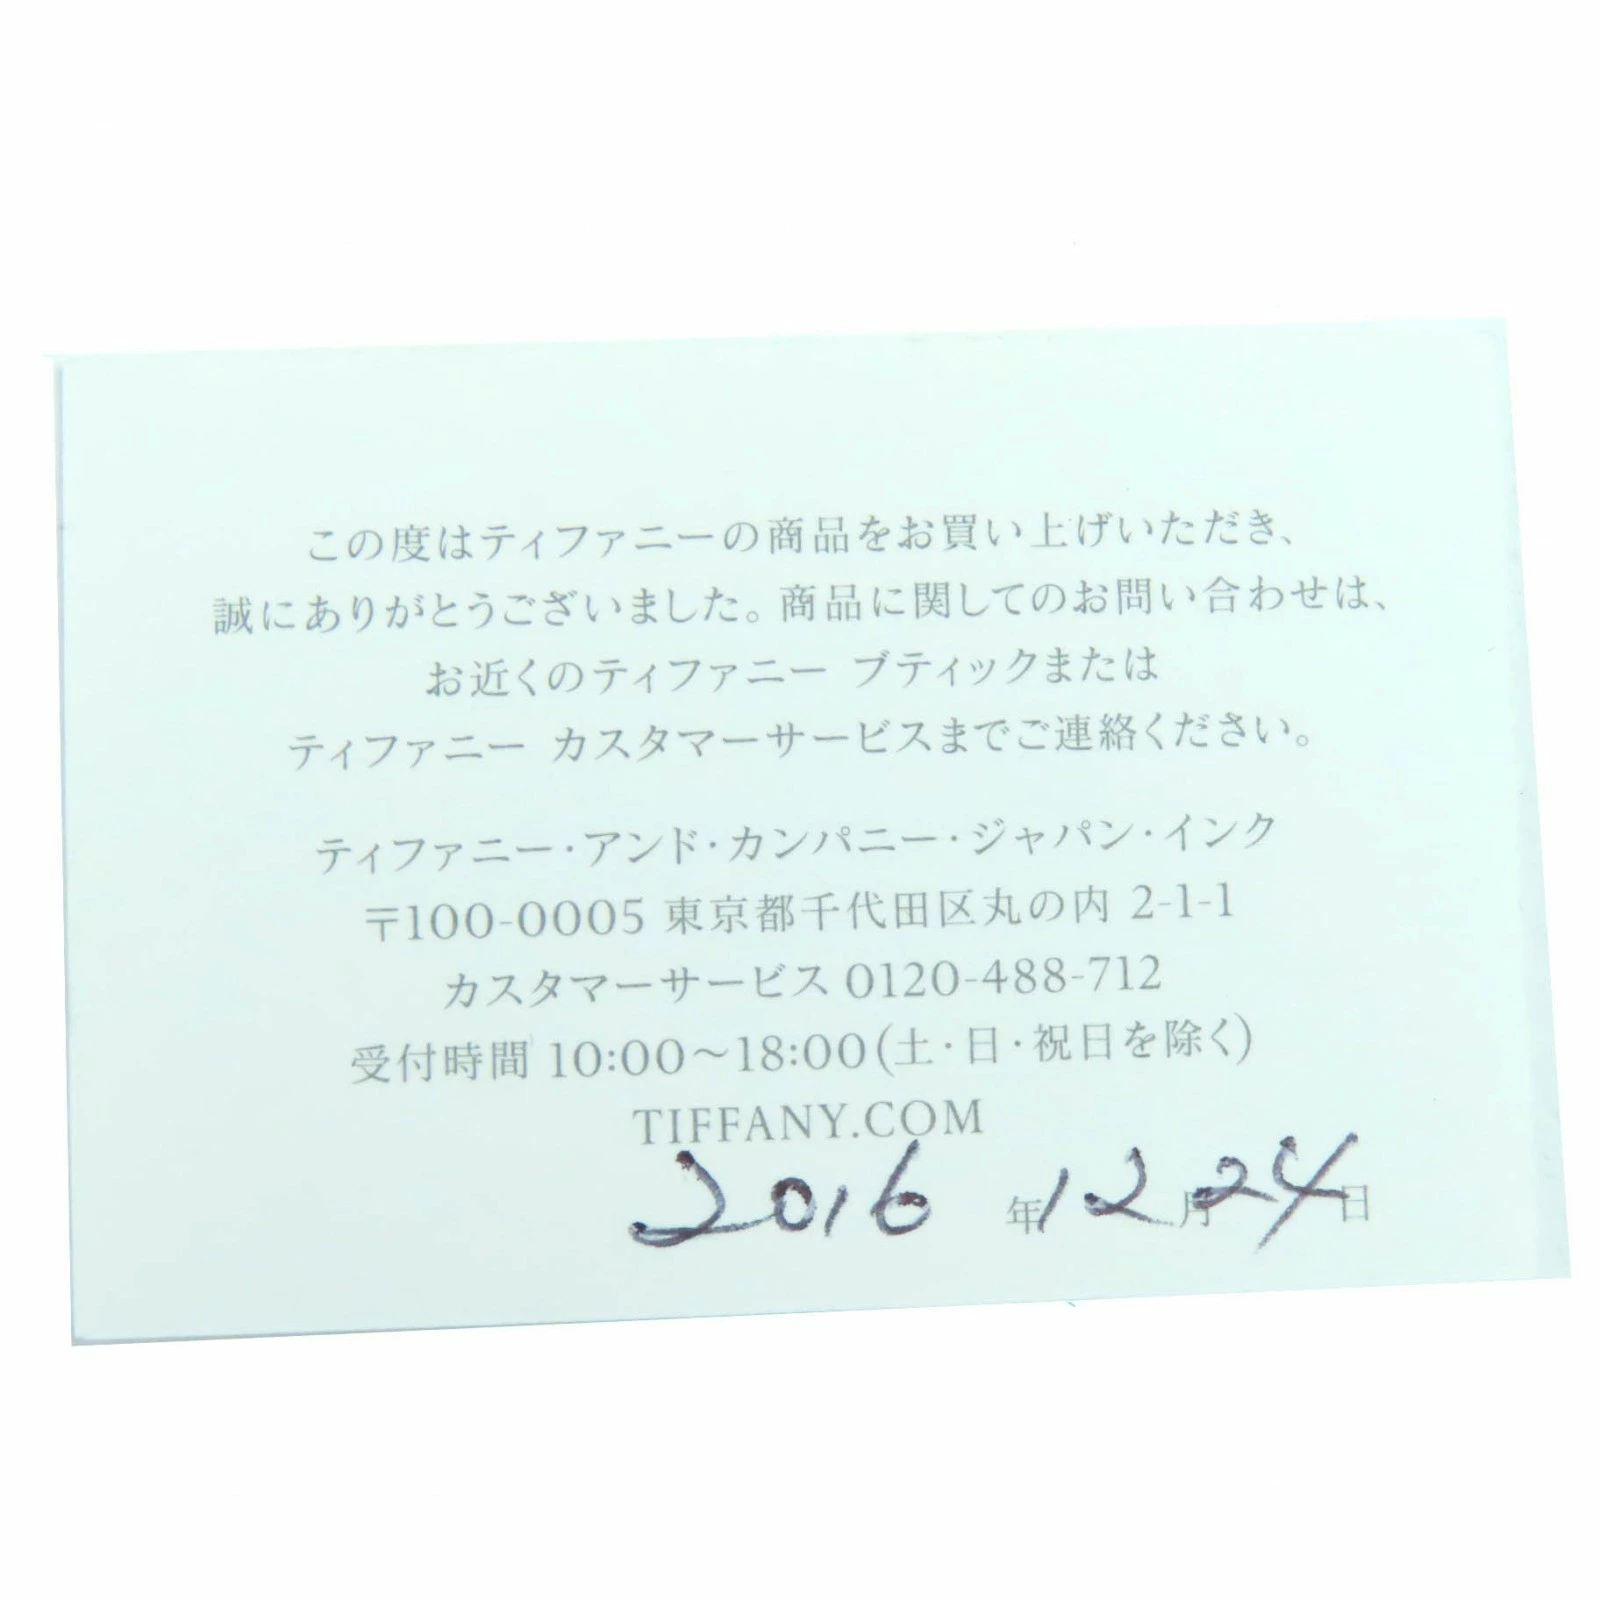 この度はティファニーの商品をお買い上げいただき、
誠にありがとうございました。商品に関してのお問い合わせは、
お近くのティファニー ブティックまたは
ティファニー カスタマーサービスまでご連絡ください。
ティファニー・アンド・カンパニー・ジャパン・インク
〒100-0005 東京都千代田区丸の内 2-1-1
カスタマーサービス 0120-488-712
受付時間 10:00～18:00(土・日・祝日を除く)
TIFFANY.COM
2016 年 12 月 24 日